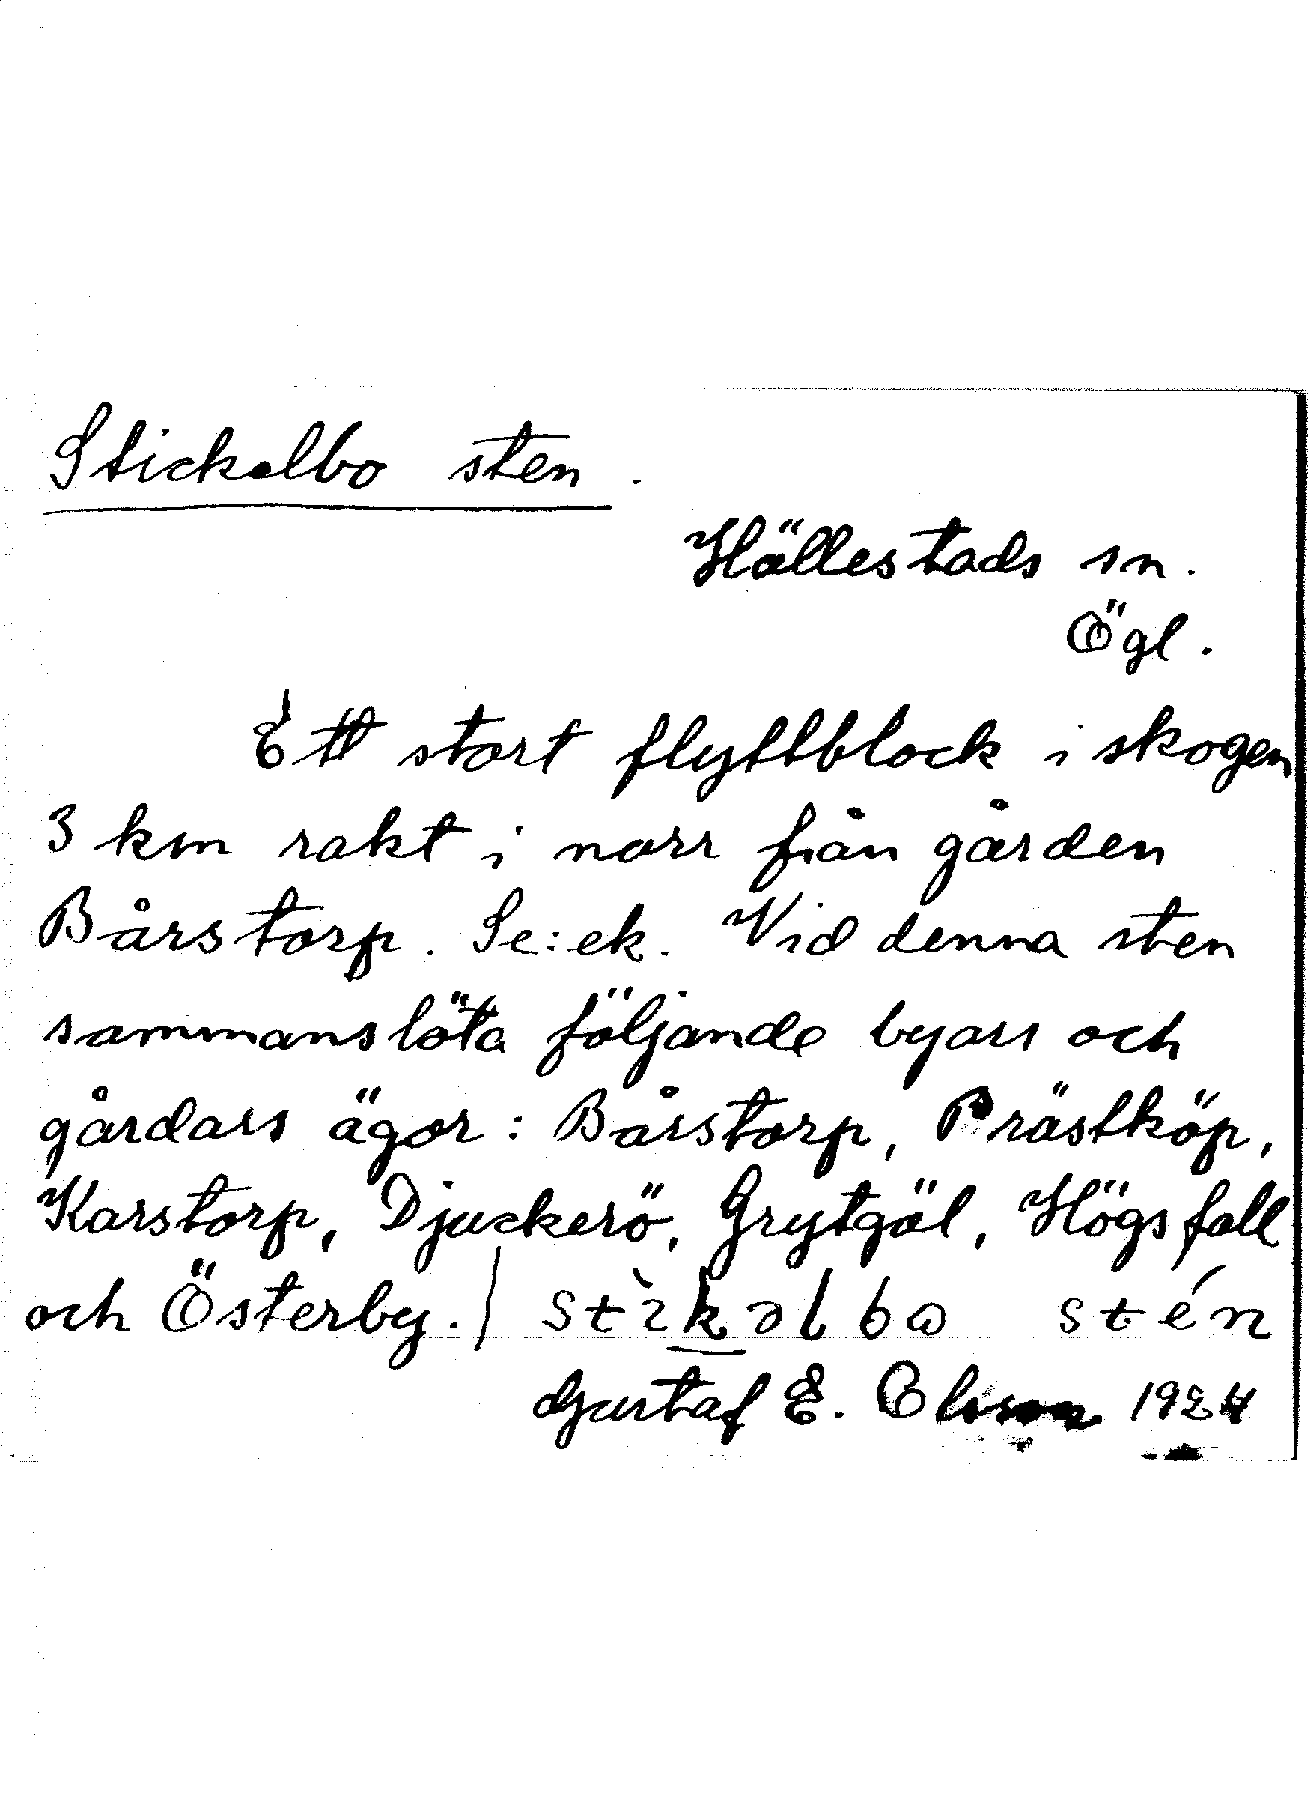 Stickelbo sten.
Hällestads sn.
Ögl.
Ett stort flyttblock i skogen
3 km rakt i norr från gården
Bårstorp. Se: ek. Vid denna sten
sammanslöta följande byars och
gårdars ägor: Bårstorp, Prästköp,
Karstorp, Djuckerö, Grytgöl, Högsfall
och Österby. / stìkəlbo stén
Gustaf E. Olsson 1924